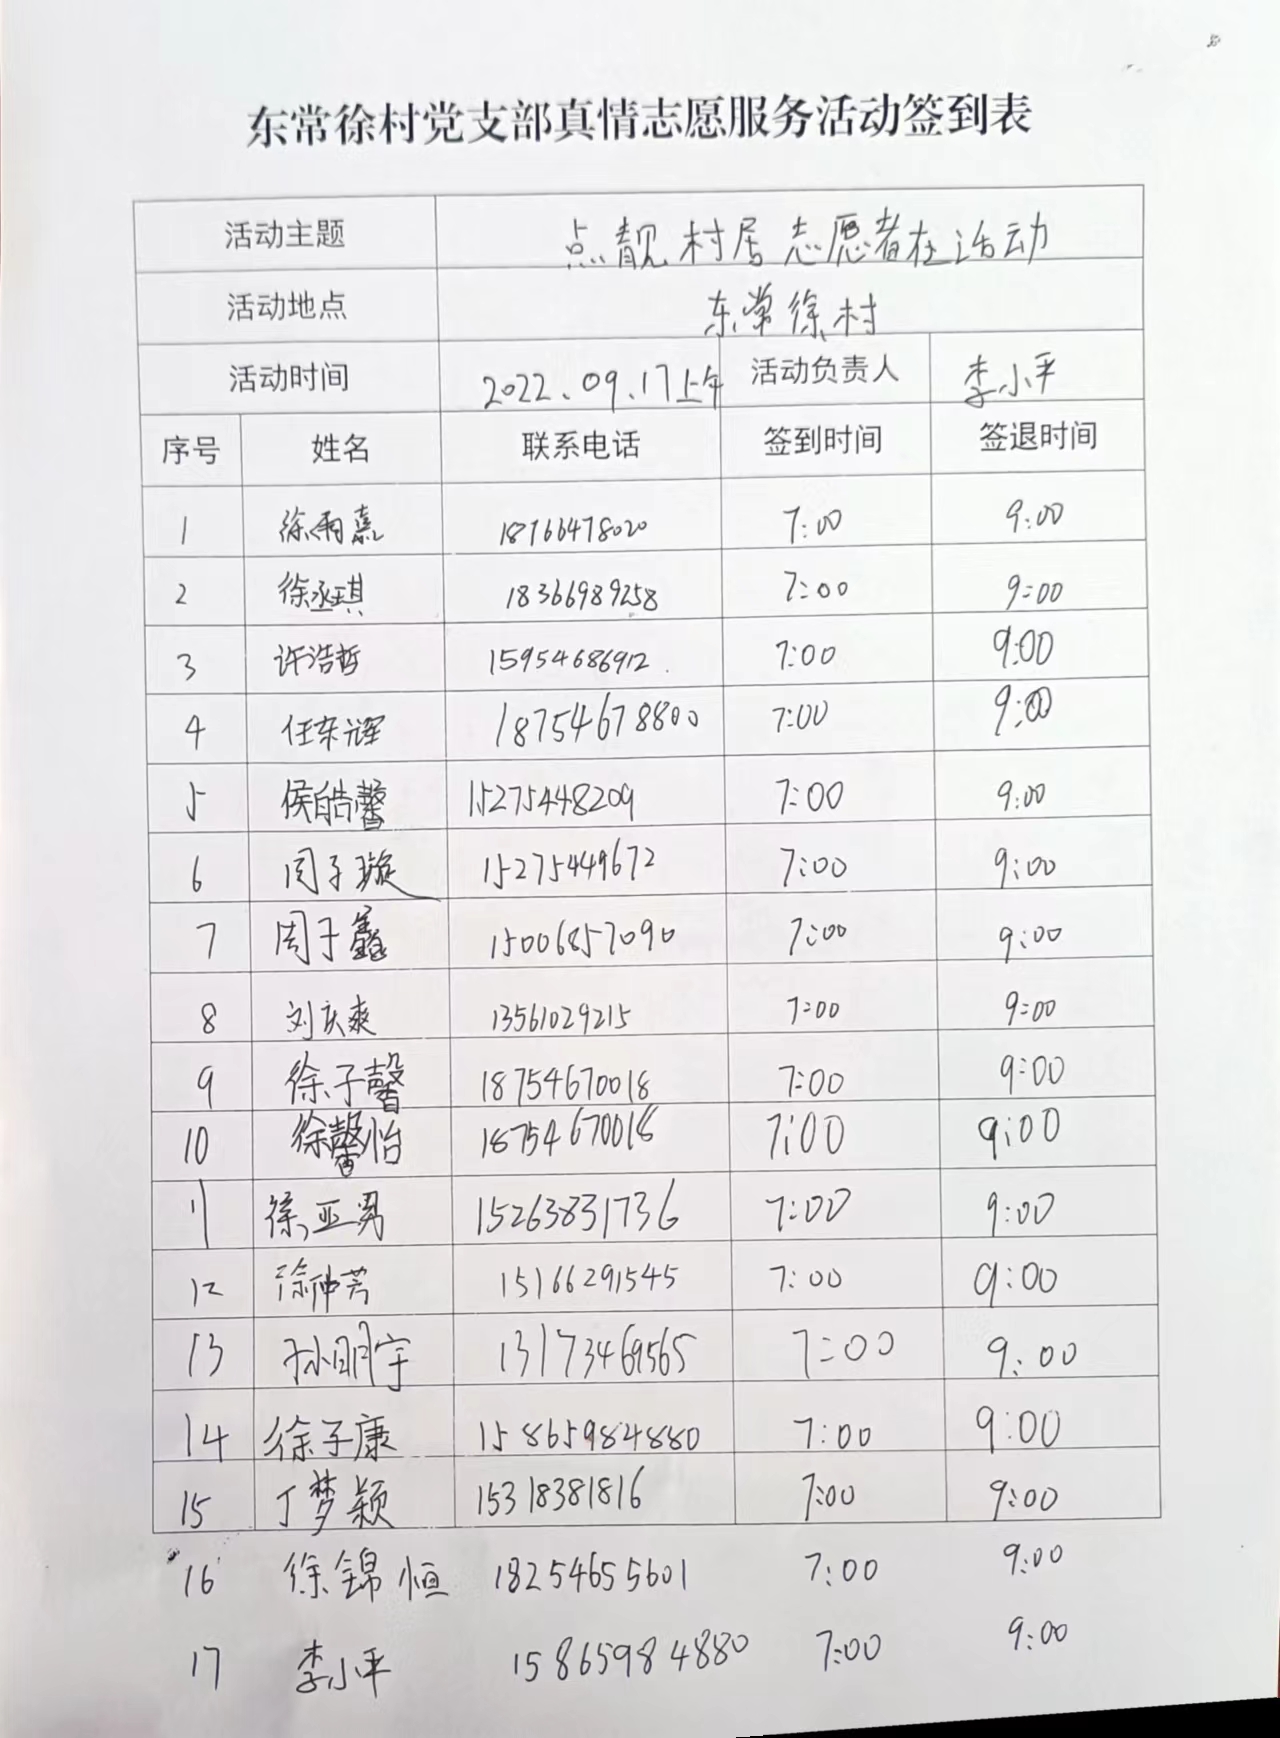 东常徐村党支部真情志愿服务活动签到表
活动主题 点靓村居志愿者在活动
活动地点 东常徐村
活动时间 2022.09.17上午 活动负责人 李小平
序号 姓名 联系电话 签到时间 签退时间
1 徐雨嘉 18766478020 7:00 9:00
2 徐丞琪 18366989258 7:00 9:00
3 许浩哲 15954686912 7:00 9:00
4 任东辉 18754678800 7:00 9:00
5 侯皓馨 15275448209 7:00 9:00
6 周子璇 15275449672 7:00 9:00
7 周于鑫 15006857090 7:00 9:00
8 刘庆爽 13561029215 7:00 9:00
9 徐子馨 18754670018 7:00 9:00
10 徐馨怡 18754670018 7:00 9:00
11 徐亚男 15263831736 7:00 9:00
12 徐仲芳 15166291545 7:00 9:00
13 孙明宇 13173469565 7:00 9:00
14 徐子康 15865984880 7:00 9:00
15 丁梦颖 15318381816 7:00 9:00
16 徐锦恒 18254655601 7:00 9:00
17 李小平 15865984880 7:00 9:00